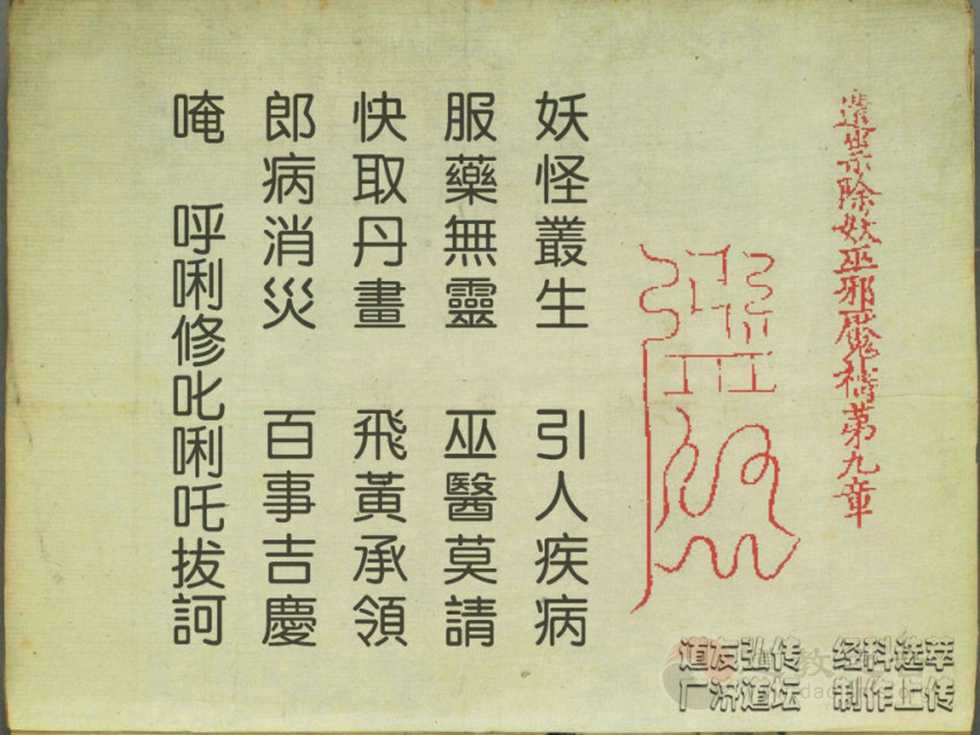 遣祟除妖巫邪魘禱第九章
妖怪叢生 引人疾病
服藥無靈 巫醫莫請
快取丹畫 飛黃承領
郎病消災 百事吉慶
唵 呼唎修叱唎吒拔訶
道友弘传 经科选萃
广济道坛 制作上传